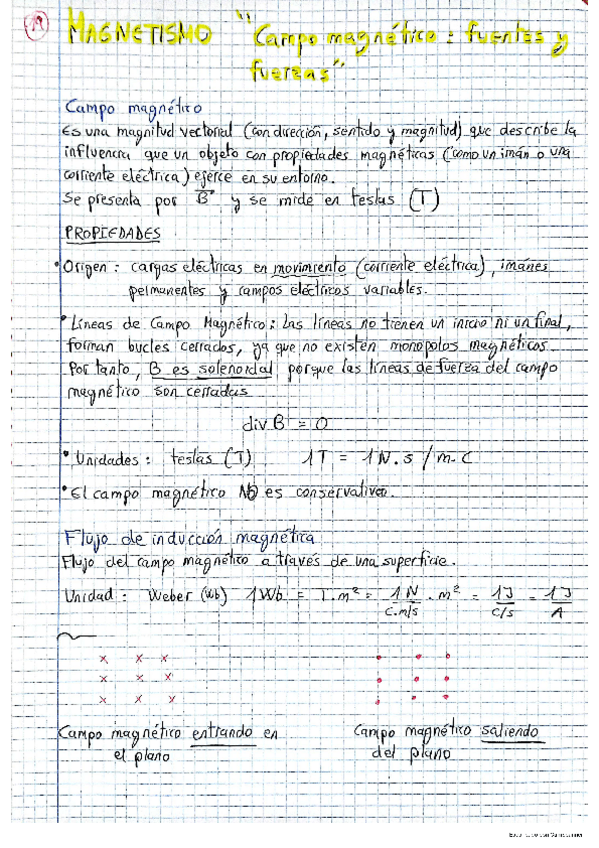 19
MAGNETISMO "Campo magnético: fuentes y
fuerzas".
Campo magnético
Es una magnitud vectorial (con dirección, sentido y magnitud) que describe la
influencia que un objeto con propiedades magnéticas (como un imán o una
corriente eléctrica) ejerce en su entorno.
Se presenta por B⃗ y se mide en teslas (T)
PROPIEDADES
• Origen: cargas eléctricas en movimiento (corriente eléctrica), imánes
permanentes y campos eléctricos variables.
• Líneas de Campo Magnético: Las líneas no tienen un inicio ni un final,
forman bucles cerrados, ya que no existen monopolos magnéticos.
Por tanto, B es solenoidal porque las líneas de fuerza del campo
magnético son cerradas
div B = 0
• Unidades: teslas (T) 1T = 1N.s/m.C
• El campo magnético NO es conservativo.
Flujo de inducción magnética
Flujo del campo magnético a través de una superficie.
Unidad: Weber (Wb) 1Wb = T.m² = 1N/C.m/s . m² = 1J/C/s = 1J/A
x x x • • •
x x x • • •
x x x • • •
Campo magnético entrando en
el plano
Campo magnético saliendo
del plano